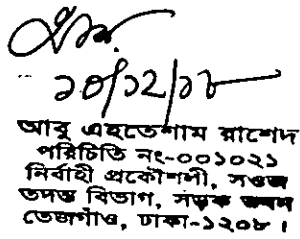 ১০/১২/১৮
আবু এহতেশাম রাশেদ
পরিচিতি নং-০০১০২১
নির্বাহী প্রকৌশলী, সওজ
তদন্ত বিভাগ, সড়ক ভবন
তেজগাঁও, ঢাকা-১২০৮।